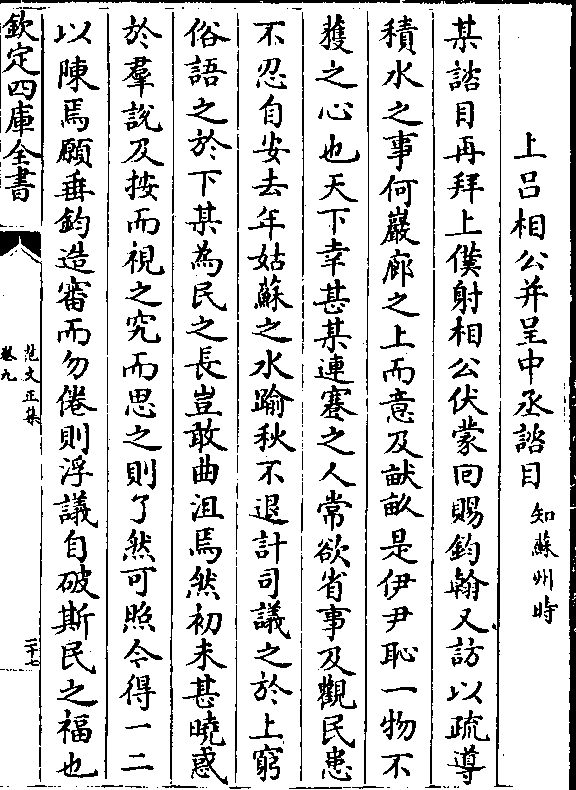 上吕相公并呈中丞諮目知蘇州時
某諮目再拜上僕射相公伏蒙回賜鈞翰又訪以疏導
積水之事何巖廊之上而意及畎畝是伊尹恥一物不
獲之心也天下幸甚某連蹇之人常欲省事及觀民患
不忍自安去年姑蘇之水踰秋不退計司議之於上窮
俗語之於下某為民之長豈敢曲沮焉然初未甚曉惑
於羣說及按而視之究而思之則了然可照今得一二
以陳焉願垂鈞造審而勿倦則浮議自破斯民之福也
欽定四庫全書
范文正集
卷九
二十七